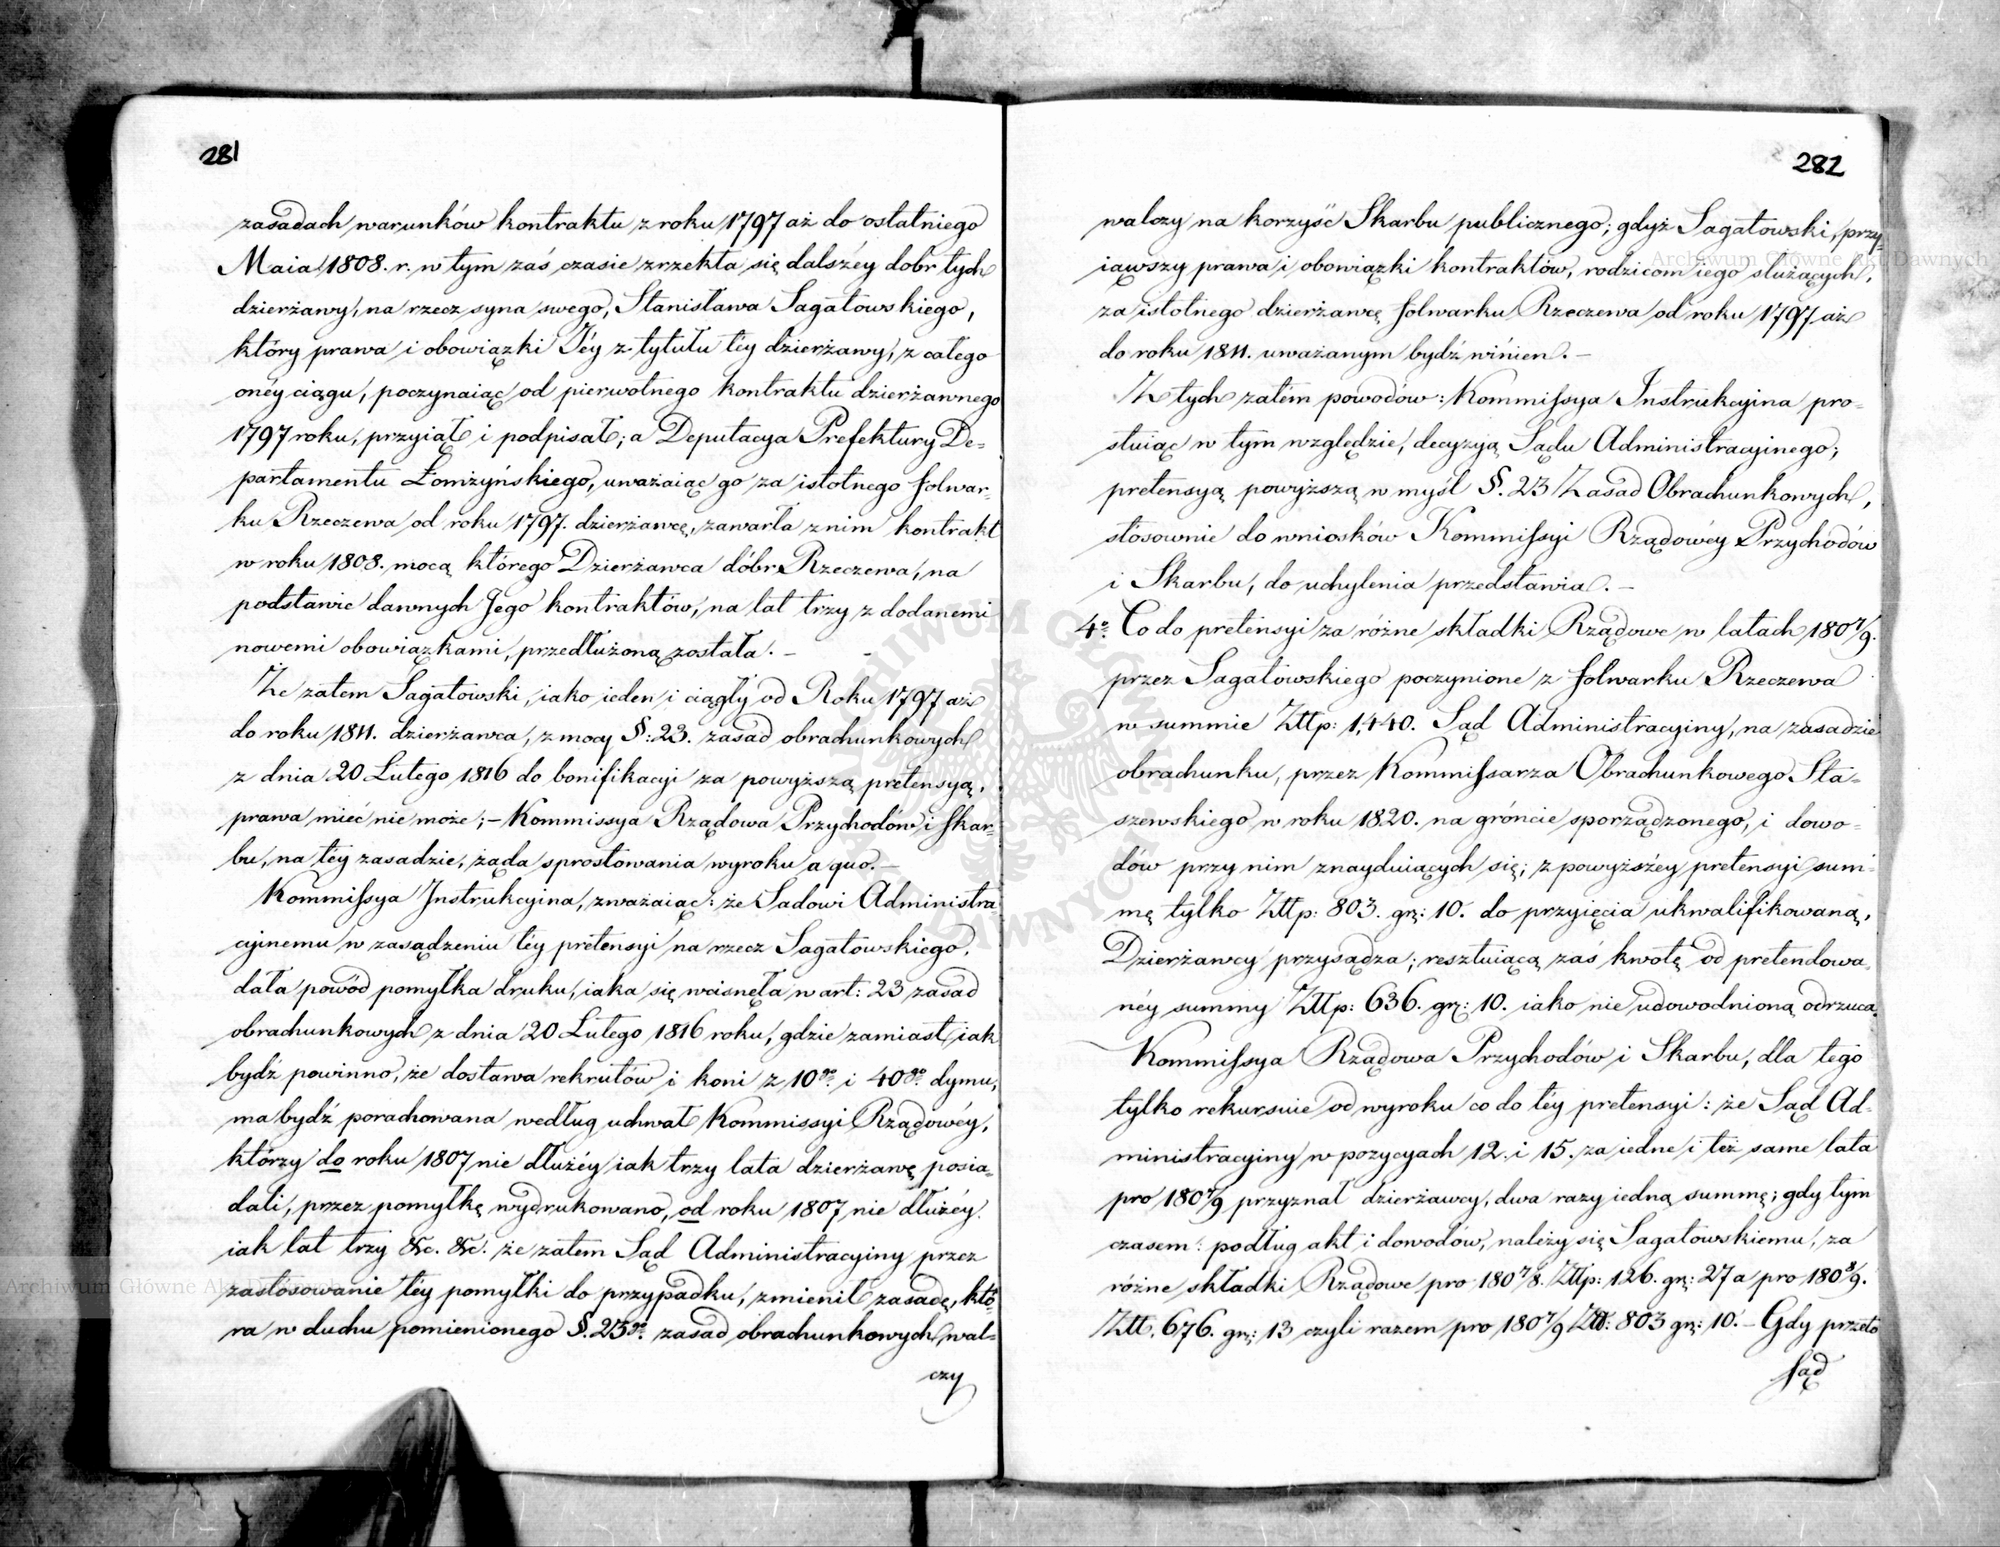 281
zasadach warunków kontraktu z roku 1797 aż do ostatniego
Maia 1808. r. w tym zaś czasie zrzekła się dalszéy dobr tych
dzierżawy, na rzecz syna swego, Stanisława Sagatowskiego,
który prawa i obowiązki Jéy z tytułu téy dzierżawy, z całego
onéy ciągu, poczynaiąc od pierwotnego kontraktu dzierżawnego
1797 roku, przyiął i podpisał; a Deputacya Prefektury De-
partamentu Łomżyńskiego, uważaiąc go za istotnego folwar-
ku Rzeczewa od roku 1797. dzierżawcę, zawarła z nim kontrakt
w roku 1808. mocą którego Dzierżawca dóbr Rzeczewa, na
podstawie dawnych Jego kontraktów, na lat trzy z dodanemi
nowemi obowiązkami, przedłużoną została. –
Że zatem Sagatowski, iako ieden i ciągły od Roku 1797 aż
do roku 1811. dzierżawca, z mocy §: 23. zasad obrachunkowych
z dnia 20 Lutego 1816 do bonifikacyi za powyższą pretensyą,
prawa mieć nie może; – Kommissya Rządowa Przychodów i Skar-
bu, na téy zasadzie, żąda sprostowania wyroku a quo. –
Kommissya Instrukcyina, zważaiąc: że Sadowi Administra-
cyinemu w zasądzeniu téy pretensyi na rzecz Sagatowskiego,
dała powód pomyłka druku, iaka się wcisnęła w art: 23 zasad
obrachunkowych z dnia 20 Lutego 1816 roku, gdzie zamiast, iak
bydź powinno, że dostawa rekrutów i koni z 10go i 40go dymu,
ma bydź porachowana według uchwał Kommissyi Rządowéy,
którzy do roku 1807 nie dłużéy iak trzy lata dzierżawę posia-
dali, przez pomyłkę wydrukowano, od roku 1807 nie dłużéy
iak lat trzy &c. &c. że zatem Sąd Administracyiny przez
zastósowanie téy pomyłki do przypadku, zmienił zasadę, któ-
ra w duchu pomienionego §. 23go zasad obrachunkowych, wal-
czy
282
walczy na korzyść Skarbu publicznego; gdyż Sagatowski, przy-
iąwszy prawa i obowiązki kontraktów, rodzicom iego służących,
za istotnego dzierżawcę folwarku Rzeczewa od roku 1797 aż
do roku 1811. uważanym bydź winien. –
Z tych zatém powodów: Kommissya Instrukcyina pro-
stuiąc w tym względzie, decyzyą Sądu Administracyinego;
pretensyą powyższą w myśl §. 23 Zasad Obrachunkowych,
stósownie do wniosków Kommissyi Rządowéy Przychodów
i Skarbu, do uchylenia przedstawia. –
4o Co do pretensyi za różne składki Rządowe w latach 1807/9.
przez Sagatowskiego poczynione z folwarku Rzeczewa
w summie Złlp: 1,440. Sąd Administracyiny, na zasadzie
obrachunku, przez Kommissarza Obrachunkowego Sta-
szewskiego w roku 1820. na gróncie sporządzonego, i dowo-
dów przy nim znayduiących się; z powyższéy pretensyi sum-
mę tylko Złlp: 803. gr: 10. do przyięcia ukwalifikowaną,
Dzierżawcy przysądza; resztuiącą zaś kwotę od pretendowa-
néy summy Złlp: 636. gr: 10. iako nie udowodnioną odrzuca.
Kommissya Rządowa Przychodów i Skarbu, dla tego
tylko rekursuie od wyroku co do téy pretensyi: że Sąd Ad-
ministracyiny w pozycyach 12. i 15. za iedne i też same lata
pro 1807/9 przyznał dzierżawcy, dwa razy iedną summę; gdy tym
czasem: podług akt i dowodów, należy się Sagatowskiemu, za
różne składki Rządowe pro 1807/8. Złlp: 126. gr: 27 a pro 1808/9.
Złl. 676. gr: 13 czyli razem pro 1807/9 Złl: 803 gr: 10. – Gdy przeto
sąd
Archiwum Główne Akt Dawnych
Archiwum Główne Akt Dawnych
ARCHIWUM GŁÓWNE AKT DAWNYCH